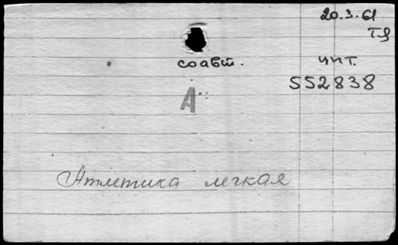 20.3.61
ТЯ
соавт.
чит.
552838
А
Атлетика легкая